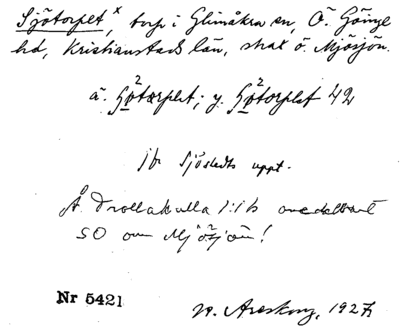 Sjötorpet x, torp i Glimåkra sn, Ö. Göinge
hd, Kristianstads län, strax ö. Mjösjön.
ä. torplet; y. torplet 42
jfr Sjöstedts uppt.
Å Trollakulla 1:1 b omedelbart
SO om Mjösjön!
Nr 5421
W. Areskog, 1927